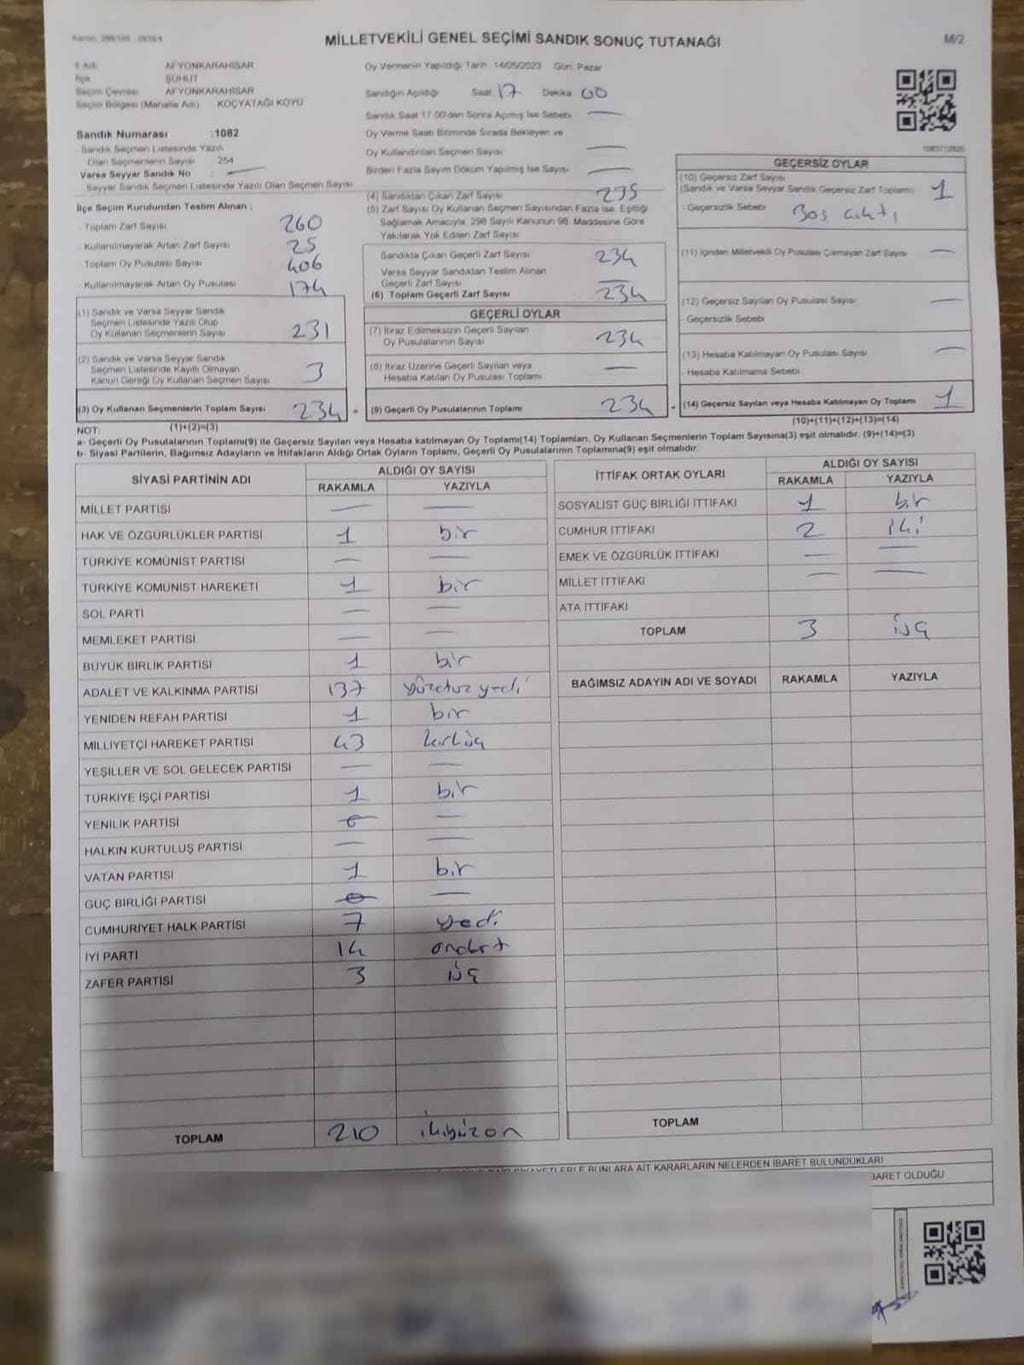 MİLLETVEKİLİ GENEL SEÇİMİ SANDIK SONUÇ TUTANAĞI
M/2
AFYONKARAHİSAR
İlçe ŞUHUT
Seçim Çevresi AFYONKARAHİSAR
Seçim Bölgesi (Mahalle Adı) KOÇYATAĞI KÖYÜ
Sandık Numarası :1082
Sandık Seçmen Listesinde Yazılı
Olan Seçmenlerin Sayısı : 254
Varsa Seyyar Sandık No : —
Seyyar Sandık Seçmen Listesinde Yazılı Olan Seçmen Sayısı
İlçe Seçim Kurulundan Teslim Alınan ;
Toplam Zarf Sayısı 260
Kullanılmayarak Artan Zarf Sayısı 25
Toplam Oy Pusulası Sayısı 406
Kullanılmayarak Artan Oy Pusulası 174
(1) Sandık ve Varsa Seyyar Sandık
Seçmen Listesinde Yazılı Olup
Oy Kullanan Seçmenlerin Sayısı 231
(2) Sandık ve Varsa Seyyar Sandık
Seçmen Listesinde Kayıtlı Olmayan
Kanun Gereği Oy Kullanan Seçmen Sayısı 3
(3) Oy Kullanan Seçmenlerin Toplam Sayısı 234
Oy Vermenin Yapıldığı Tarih 14/05/2023 Gün: Pazar
Sandığın Açıldığı Saat 17 Dakika 00
Sandık Saat 17.00'den Sonra Açılmış İse Sebebi —
Oy Verme Saati Bitiminde Sırada Bekleyen ve
Oy Kullandırılan Seçmen Sayısı —
Birden Fazla Sayım Döküm Yapılmış İse Sayısı —
(4) Sandıktan Çıkan Zarf Sayısı 235
(5) Zarf Sayısı Oy Kullanan Seçmen Sayısından Fazla İse, Eşitliği
Sağlamak Amacıyla, 298 Sayılı Kanunun 98. Maddesine Göre
Yakılarak Yok Edilen Zarf Sayısı
Sandıkta Çıkan Geçerli Zarf Sayısı 234
Varsa Seyyar Sandıktan Teslim Alınan
Geçerli Zarf Sayısı —
(6) Toplam Geçerli Zarf Sayısı 234
GEÇERLİ OYLAR
(7) İtiraz Edilmeksizin Geçerli Sayılan
Oy Pusulalarının Sayısı 234
(8) İtiraz Üzerine Geçerli Sayılan veya
Hesaba Katılan Oy Pusulası Toplamı —
(9) Geçerli Oy Pusulalarının Toplamı 234
GEÇERSİZ OYLAR
(10) Geçersiz Zarf Sayısı
(Sandık ve Varsa Seyyar Sandık Geçersiz Zarf Toplamı) 1
- Geçersizlik Sebebi Boş çıktı
(11) İçinden Milletvekili Oy Pusulası Çıkmayan Zarf Sayısı —
(12) Geçersiz Sayılan Oy Pusulası Sayısı —
- Geçersizlik Sebebi
(13) Hesaba Katılmayan Oy Pusulası Sayısı —
- Hesaba Katılmama Sebebi
(14) Geçersiz Sayılan veya Hesaba Katılmayan Oy Toplamı 1
NOT: (1)+(2)=(3) (10)+(11)+(12)+(13)=(14)
a- Geçerli Oy Pusulalarının Toplamı(9) ile Geçersiz Sayılan veya Hesaba katılmayan Oy Toplamı(14) Toplamları, Oy Kullanan Seçmenlerin Toplam Sayısına(3) eşit olmalıdır. (9)+(14)=(3)
b- Siyasi Partilerin, Bağımsız Adayların ve İttifakların Aldığı Ortak Oyların Toplamı, Geçerli Oy Pusulalarının Toplamına(9) eşit olmalıdır.
SİYASİ PARTİNİN ADI ALDIĞI OY SAYISI
RAKAMLA YAZIYLA
MİLLET PARTİSİ — —
HAK VE ÖZGÜRLÜKLER PARTİSİ 1 bir
TÜRKİYE KOMÜNİST PARTİSİ — —
TÜRKİYE KOMÜNİST HAREKETİ 1 bir
SOL PARTİ — —
MEMLEKET PARTİSİ — —
BÜYÜK BİRLİK PARTİSİ 1 bir
ADALET VE KALKINMA PARTİSİ 137 yüzotuz yedi
YENİDEN REFAH PARTİSİ 1 bir
MİLLİYETÇİ HAREKET PARTİSİ 43 kırküç
YEŞİLLER VE SOL GELECEK PARTİSİ — —
TÜRKİYE İŞÇİ PARTİSİ 1 bir
YENİLİK PARTİSİ — —
HALKIN KURTULUŞ PARTİSİ — —
VATAN PARTİSİ 1 bir
GÜÇ BİRLİĞİ PARTİSİ — —
CUMHURİYET HALK PARTİSİ 7 yedi
İYİ PARTİ 14 ondört
ZAFER PARTİSİ 3 üç
TOPLAM 210 ikiyüzon
İTTİFAK ORTAK OYLARI ALDIĞI OY SAYISI
RAKAMLA YAZIYLA
SOSYALİST GÜÇ BİRLİĞİ İTTİFAKI 1 bir
CUMHUR İTTİFAKI 2 iki
EMEK VE ÖZGÜRLÜK İTTİFAKI — —
MİLLET İTTİFAKI — —
ATA İTTİFAKI
TOPLAM 3 üç
BAĞIMSIZ ADAYIN ADI VE SOYADI RAKAMLA YAZIYLA
TOPLAM
BUNLARA AİT KARARLARIN NELERDEN İBARET BULUNDUKLARI
İBARET OLDUĞU